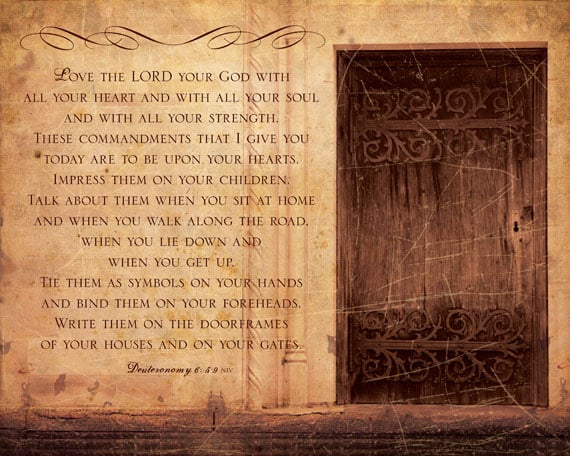 Love the LORD your God with
all your heart and with all your soul
and with all your strength.
These commandments that I give you
today are to be upon your hearts.
Impress them on your children.
Talk about them when you sit at home
and when you walk along the road.
when you lie down and
when you get up.
Tie them as symbols on your hands
and bind them on your foreheads.
Write them on the doorframes
of your houses and on your gates.
Deuteronomy 6: 5-9 NIV